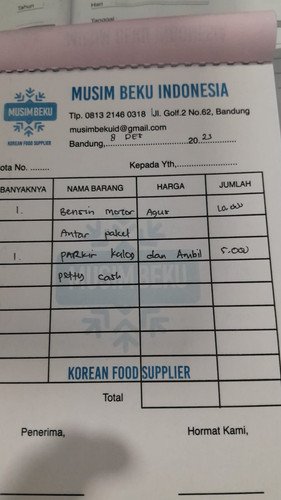 Tahun
Hari
Tanggal
MUSIM BEKU
KOREAN FOOD SUPPLIER
MUSIM BEKU INDONESIA
Tlp. 0813 2146 0318 Jl. Golf.2 No.62, Bandung
musimbekuid@gmail.com
Bandung, 8 Des 20 23
ota No. ........
Kepada Yth,........................
BANYAKNYA NAMA BARANG HARGA JUMLAH
1. Bensin motor Agus 10.000
Antar paket
1. Parkir kalog dan Ambil 5.000
petty cash
MUSIM BEKU
KOREAN FOOD SUPPLIER
Total
Penerima, Hormat Kami,